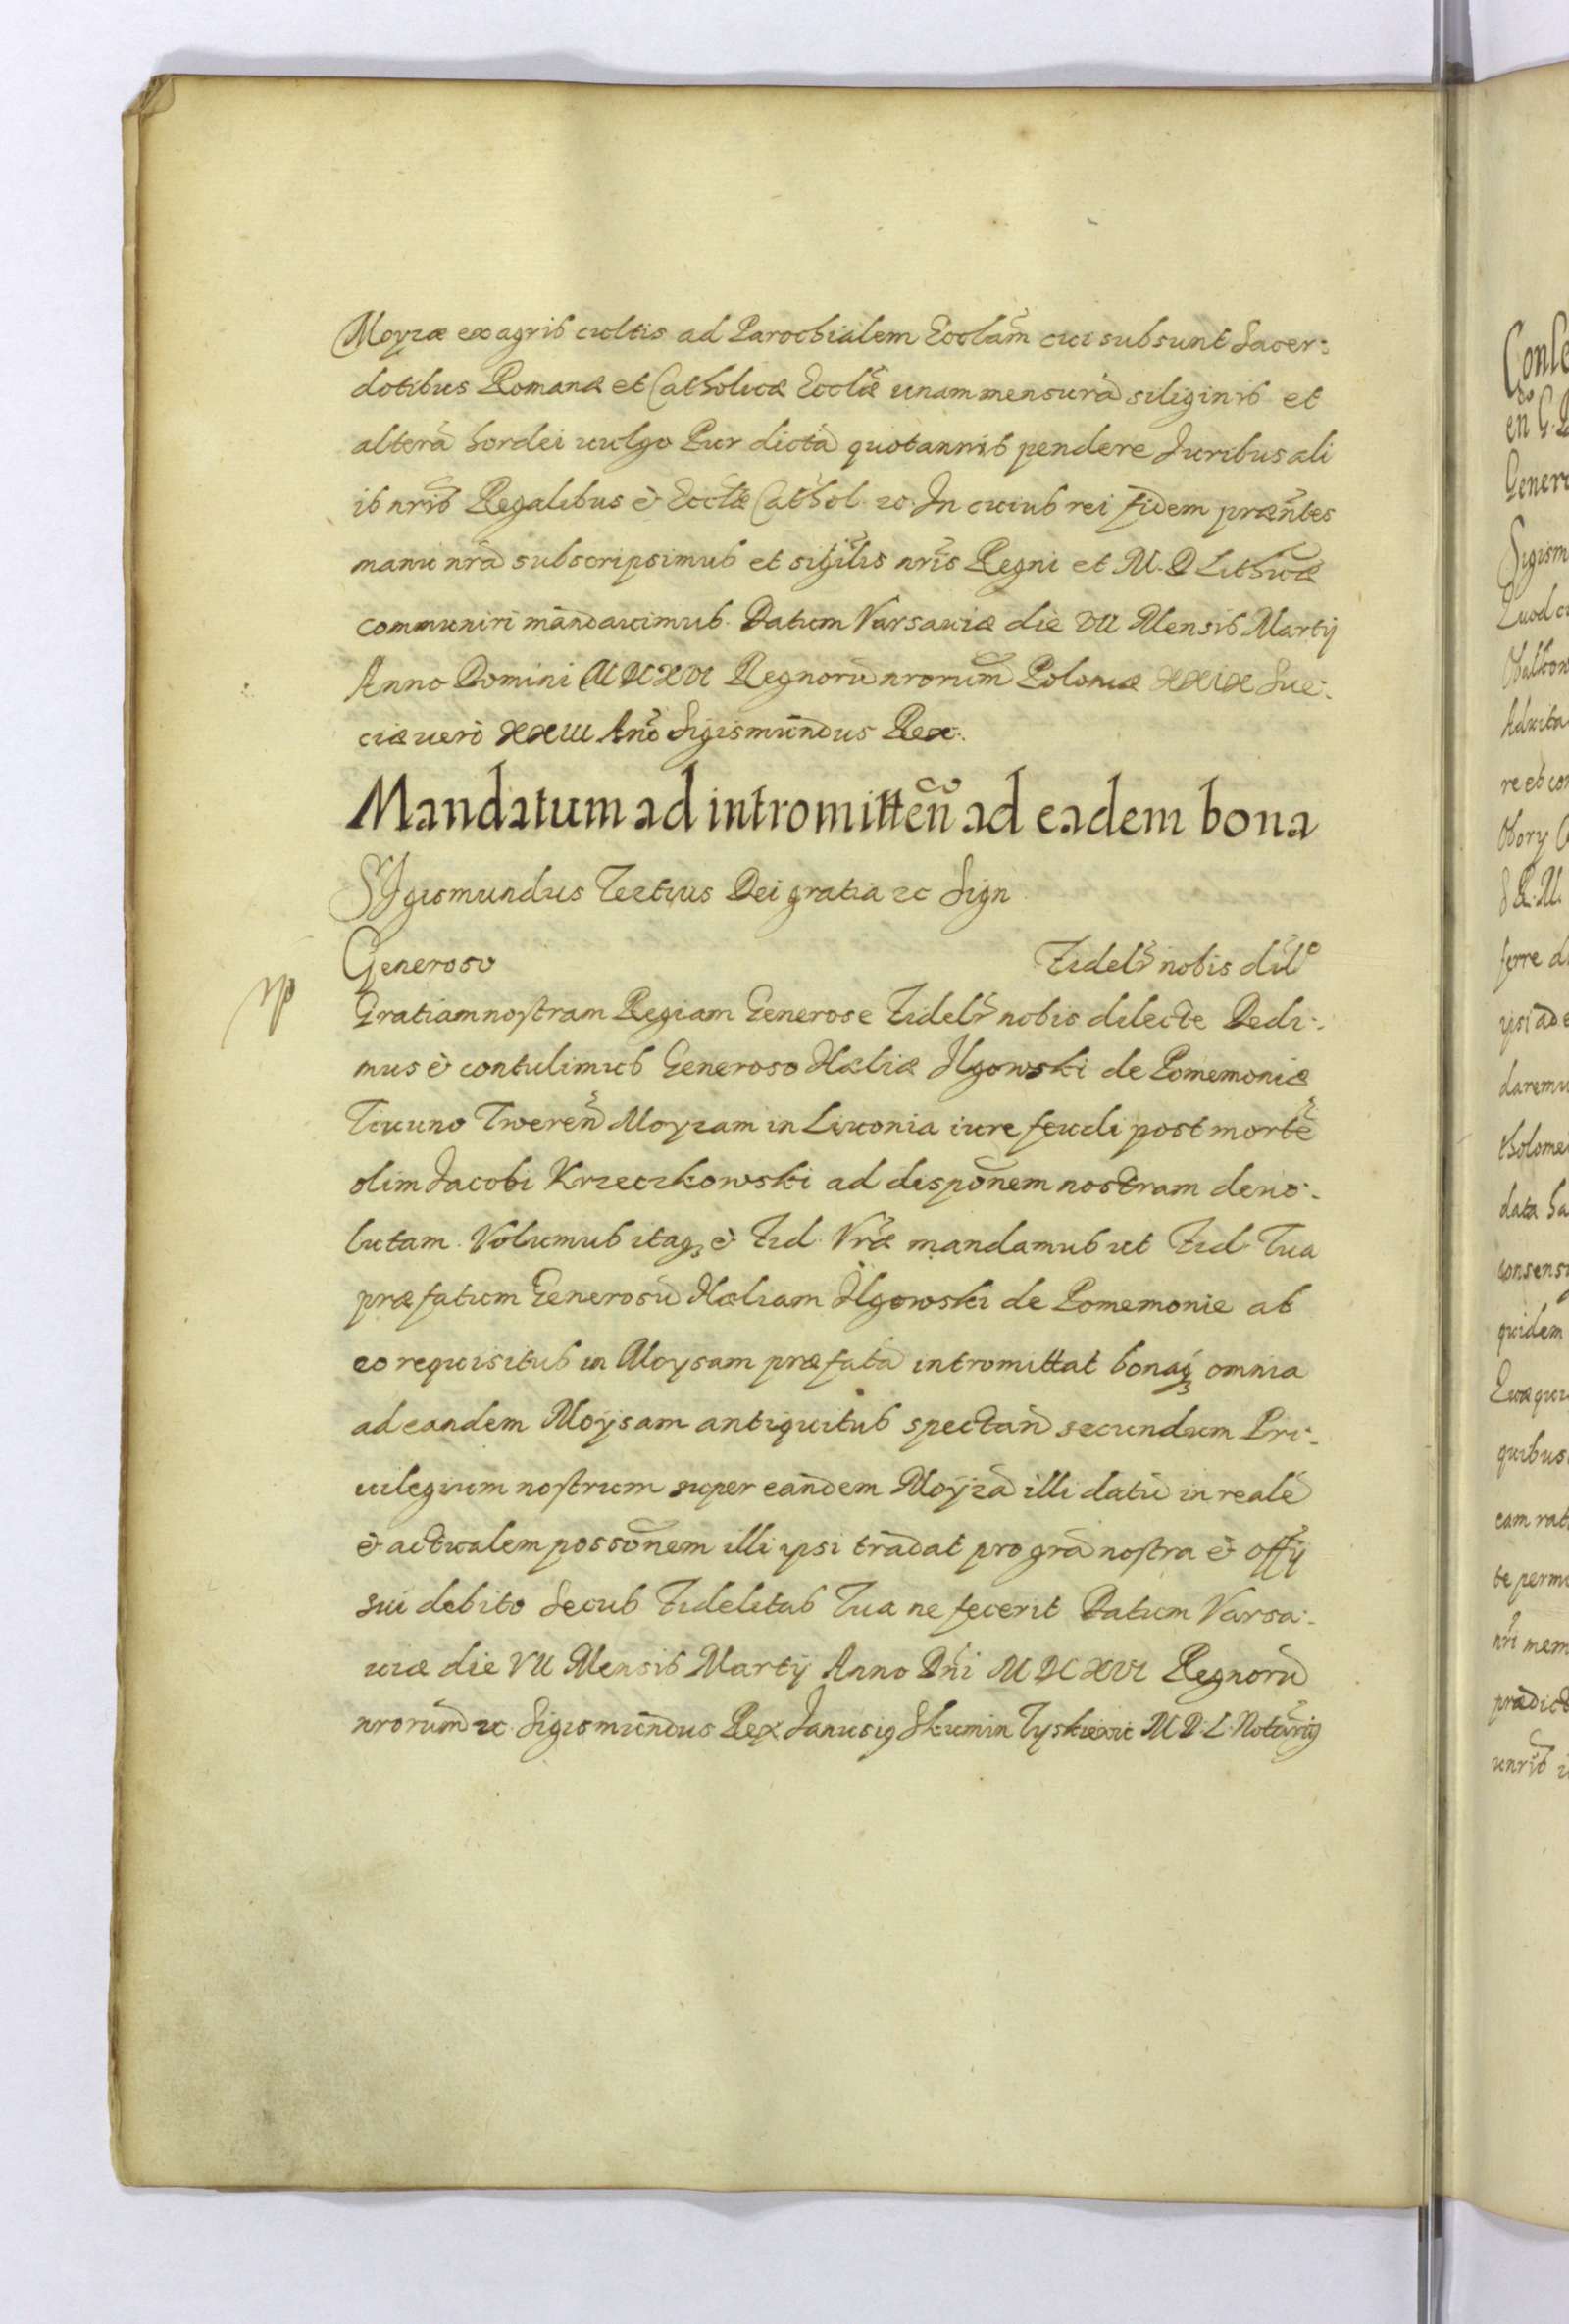 Moyzæ ex agris cultis ad Parochialem Ecclam cui subsunt Sacer:
dotibus Romanæ et Catholicæ Ecclæ unam mensurã siliginis et
alterã hordei uulgo Pur dictã quotannis pendere Juribus ali
is nris Regalibus & Ecclæ Cathol. zc. In cuius rei fidem præntes
manu nrã subscripsimus et sigilis nris Regni et M. D Lithuæ
communiri mandauimus. Datum Varsauiæ die VII Mensis Martij
Anno Domini MDCXVI Regnorũ nrorum Poloniæ XXIX Sue:
ciæ uero XXIII Anõ Sigismundus Rex.
Mandatum ad intromitteñ ad eadem bona
SIgismundus Tertius Dei gratia zc Sign
Generoso Fidelr nobis dilo
Gratiam nostram Regiam Generose Fidelr nobis dilecte Dedi:
mus & contulimus Generoso Hæliæ Ilgowski de Pomemoniæ
Tiuuno Tweren Moyzam in Liuonia iure feudi post mortẽ
olim Jacobi Krzeczkowski ad disponem nostram deuo:
lutam. Volumus itaq3 & Fid. Vræ mandamus ut Fid. Tua
præfatum Generosũ Hæliam Ilgowski de Pomemonie ab
eo requisitus in Moysam præfatã intromittat bonaq3 omnia
ad eandem Moysam antiquitus spectañ secundum Pri:
uilegium nostrum super eandem Moyzã illi datũ in realẽ
& actualem possonem illi ipsi tradat pro grã nostra & offij
sui debito Secus Fidelitas Tua ne fecerit Datum Varsa:
uiæ die VII Mensis Martij Anno Dni MDCXVI Regnorũ
nrorum zc. Sigismundus Rex Janusig Skumin Tyskiewic M D. L. Notarig